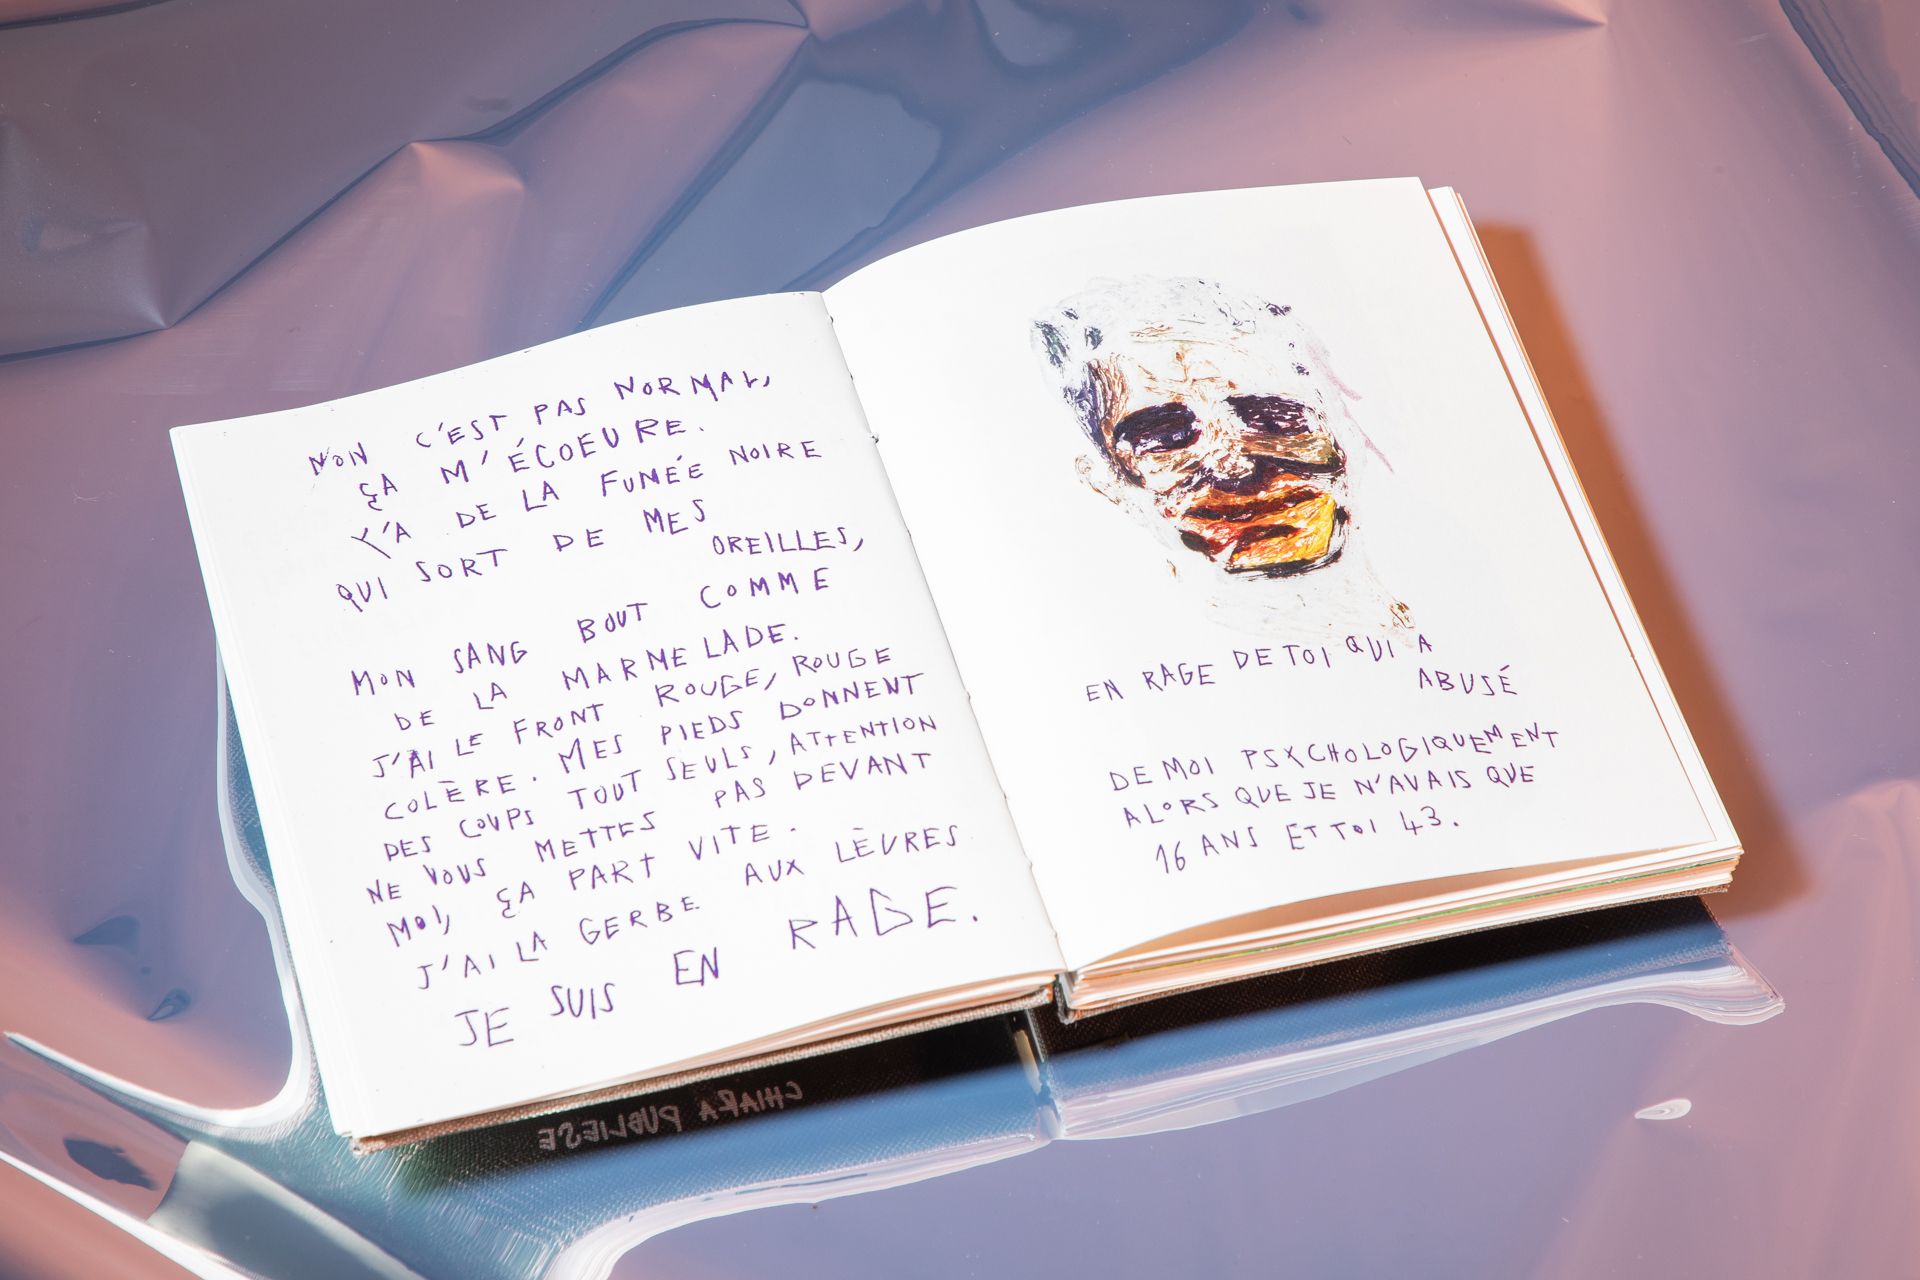 NON C'EST PAS NORMAL,
ÇA M'ÉCOEURE.
Y'A DE LA FUMÉE NOIRE
QUI SORT DE MES
OREILLES,
MON SANG BOUT COMME
DE LA MARMELADE.
J'AI LE FRONT ROUGE, ROUGE
COLÈRE. MES PIEDS DONNENT
DES COUPS TOUT SEULS, ATTENTION
NE VOUS METTES PAS DEVANT
MOI, ÇA PART VITE.
J'AI LA GERBE AUX LÈVRES
JE SUIS EN RAGE.
EN RAGE DE TOI QUI A
ABUSÉ
DE MOI PSYCHOLOGIQUEMENT
ALORS QUE JE N'AVAIS QUE
16 ANS ET TOI 43.
CHIARA PUGLIESE